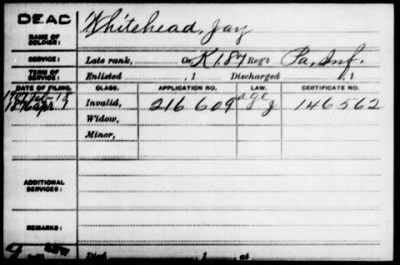 DEAC
Whitehead, Jay
NAME OF SOLDIER:
SERVICE: Late rank, Co. K 187 Reg't Pa, Inf.
TERM OF SERVICE: Enlisted , 1 Discharged , 1
DATE OF FILING. CLASS. APPLICATION NO. LAW. CERTIFICATE NO.
Invalid, 216 609 146562
Widow,
Minor,
ADDITIONAL SERVICES:
REMARKS:
Died , 1 , at